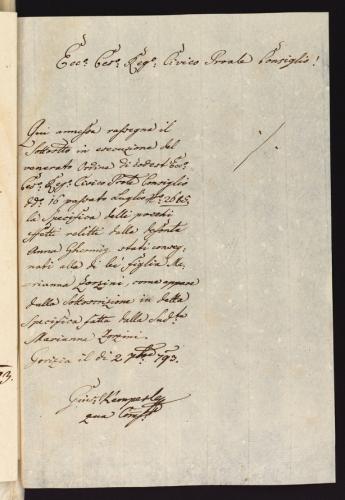 Ecc. Ces. Reg. Civico Prole Consiglio!
Qui annessa rassegna il
Sottoscritto in esecuzione del
venerato Ordine di codest' Ecc.
Ces. Reg. Civico Prole Consiglio
dd. 16 passato Luglio
la Specifica delli pochi
effetti relitti dalla defonta
Anna stati conseg-
nati alla di lei figlia Ma-
rianna Zorzini, come appare
dalla Sottoscrizione in detta
Specifica fatta dalla Sud.ta
Marianna Zorzini.
Gorizia il di 2 793.
qua